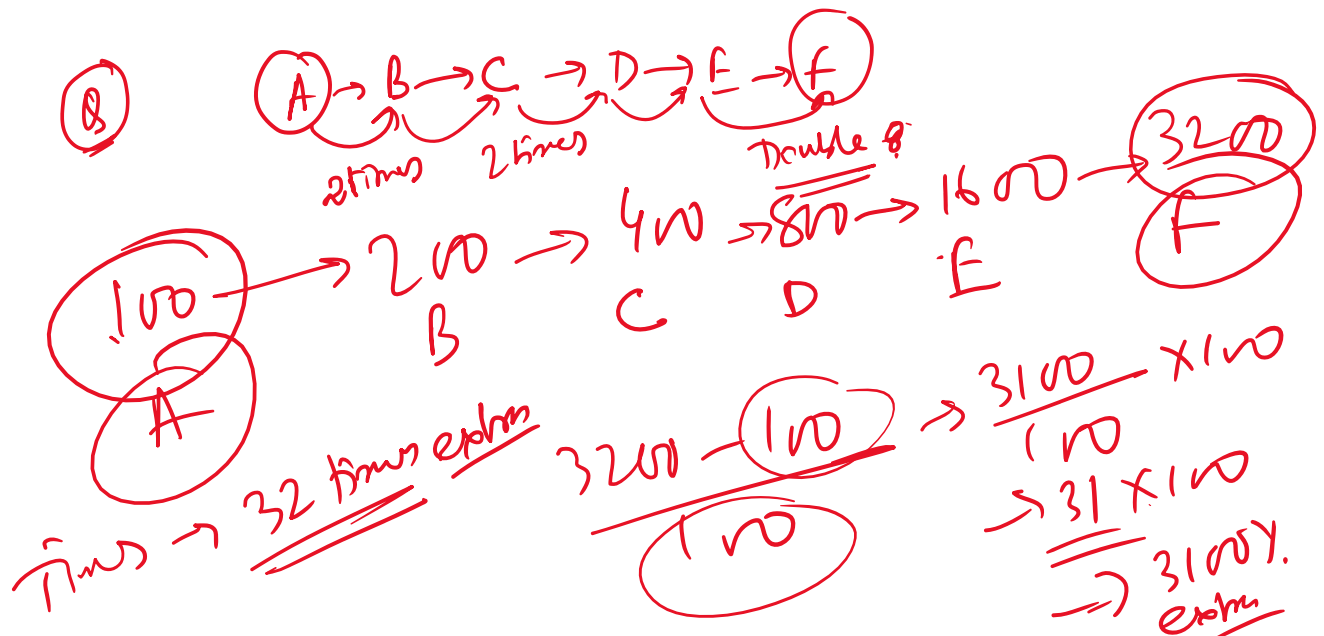 Q A → B → C → D → E → F
2 times 2 times Double
100 → 200 → 400 → 800 → 1600 → 3200
A B C D E F
Times → 32 times extra
3200 - 100 / 100 → 3100 / 100 × 100
→ 31 × 100
→ 3100%
extra